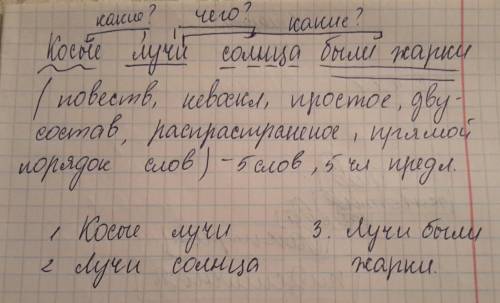 какие? чего? какие?
Косые лучи солнца были жарки
(повеств, невоскл, простое, дву-
состав, распрастраненое, прямой
порядок слов) - 5 слов, 5 чл предл.
1 Косые лучи 3. Лучи были
2 Лучи солнца жарки.